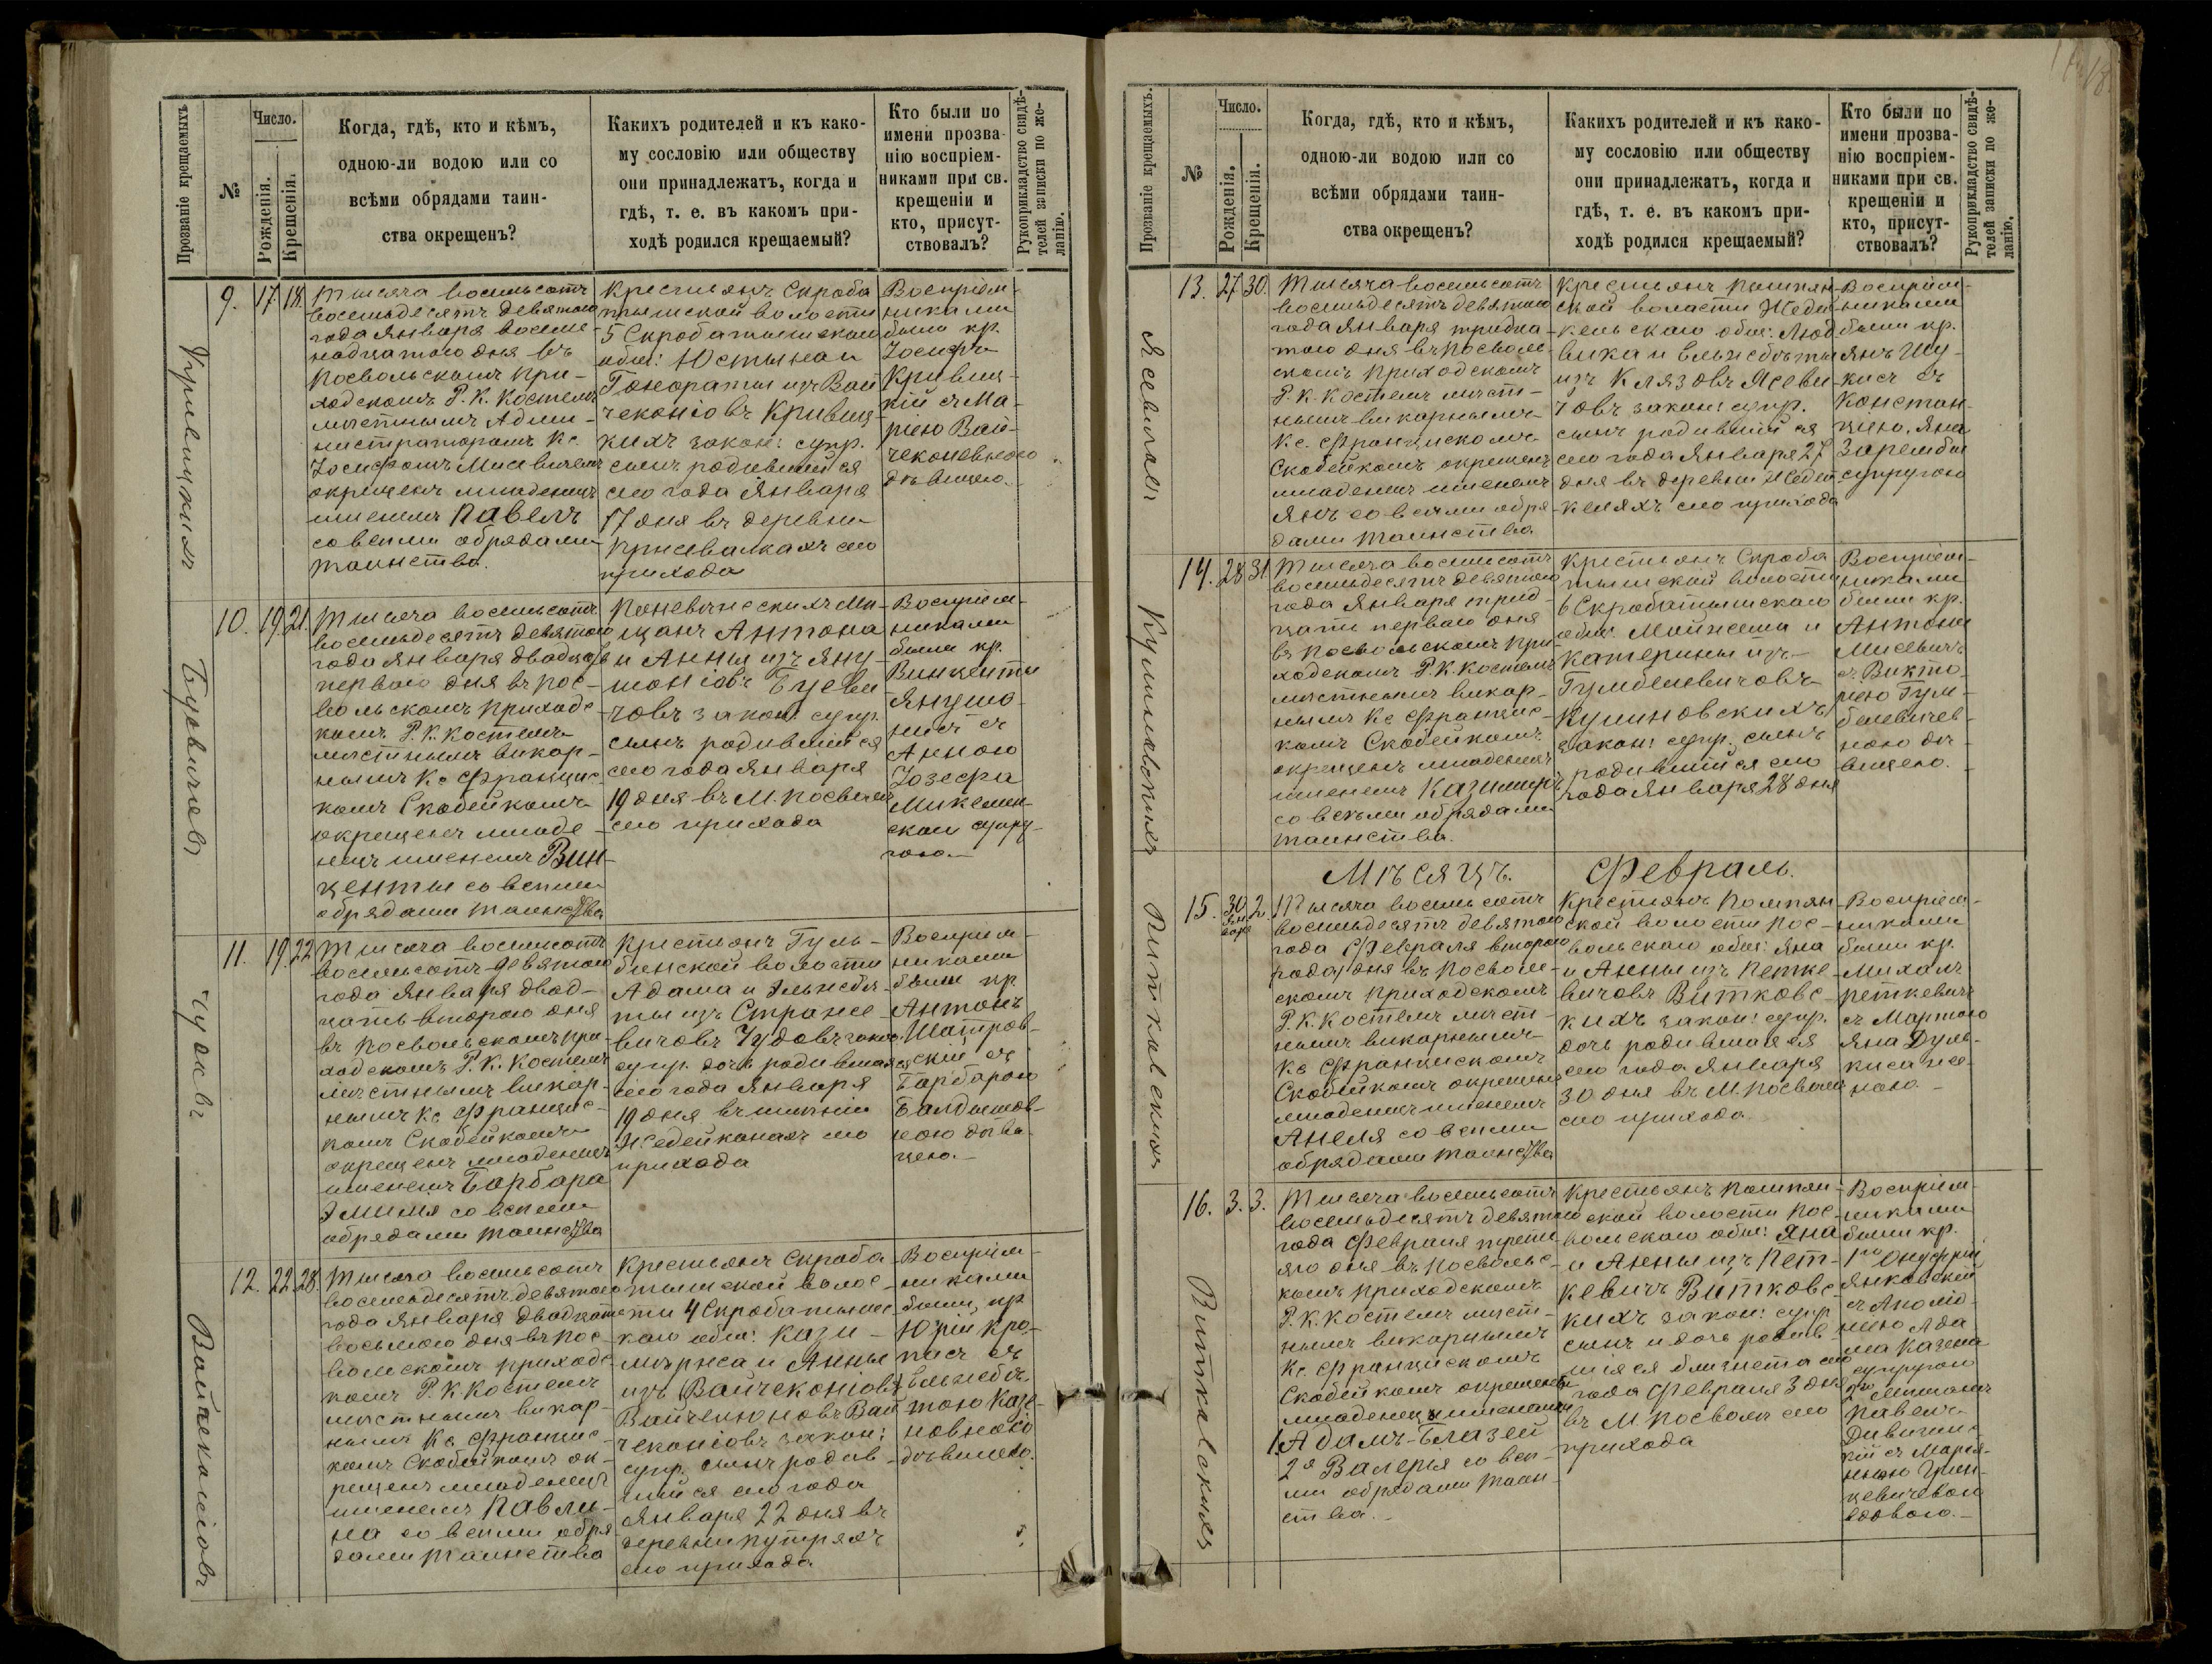 Прозваніе крещаемыхъ
№
Число.
Рожденія.
Крещенія.
Когда, гдѣ, кто и кѣмъ,
одною-ли водою или со
всѣми обрядами таин-
ства окрещенъ?
Какихъ родителей и къ како-
му сословію или обществу
они принадлежатъ, когда и
гдѣ, т. е. въ какомъ при-
ходѣ родился крещаемый?
Кто были по
имени прозва-
нію воспріем-
никами при св.
крещеніи и
кто, присут-
ствовалъ?
Рукоприкладство свидѣ-
телей записки по же-
ланію.
Кривицкихъ
9. 17. 18.
Тысяча восемьсотъ
восемьдесятъ девятого
года Января восем-
надцатого дня въ
Посвольскомъ При-
ходскомъ Р. К. Костелѣ
мѣстнымъ Адми-
нистраторомъ Кс.
Іосифомъ Мисевичемъ
окрещенъ младенецъ
именемъ Павелъ
со всѣми обрядами
таинства.
Крестьянъ Скроба
тышской волости
5 Скробатышскаго
общ: Юстына и
Гонораты изъ Вай
чеконіовъ Кривиц-
кихъ закон: супр.
сынъ родившійся
сего года Января
17 дня въ деревни
сего
прихода
Воспріем-
никами
были кр.
Іосифъ
Кривиц-
кій съ Ма-
ріею Вай-
чеконевною
дѣвицею.
Буевичовъ
10. 19. 21.
Тысяча восемьсотъ
восемьдесятъ девятого
года Января двадцать
первого дня въ Пос-
вольскомъ Приходс-
комъ Р. К. Костелѣ
мѣстнымъ викар-
нымъ Кс Францис-
комъ Скобейкомъ
окрещенъ младе-
нецъ именемъ Вин-
центы со всѣми
обрядами таинства
Поневѣжскихъ Мѣ-
щанъ Антона
и Анны изъ Яну-
шоніовъ Буеви-
човъ закон: супр.
сынъ родившійся
сего года Января
19 дня въ М. Посволѣ
сего прихода
Воспріем-
никами
были кр.
Винценты
Янушо-
нисъ съ
Анною
Іозефа
супру-
гою.
Чудовъ
11. 19. 22.
Тысяча восемьсотъ
восемьсотъ девятого
года Января двад-
цать второго дня
въ Посвольскомъ При-
ходскомъ Р. К. Костелѣ
мѣстнымъ викар-
нымъ Кс Францис-
комъ Скобейкомъ
окрещенъ младенецъ
именемъ Барбара
Эмилія со всѣми
обрядами таинства
Крестьянъ Гуль-
бинской волости
Адама и Эльжбѣ-
ты изъ Странсе-
вичовъ Чудовъ закон.
супр. дочь родившаяся
сего года Января
19 дня въ имѣніи
Жедейконяхъ сего
прихода
Воспріем-
никами
были кр.
Антонъ
Шатров-
скій съ
Барбарою
ною дѣви-
цею.
Вайчеконіовъ
12. 22. 28.
Тысяча восемьсотъ
восемьдесятъ девятого
года Января двадцать
восьмого дня въ Пос-
вольскомъ приходс-
комъ Р. К Костелѣ
мѣстнымъ викар-
нымъ Кс Францис-
комъ Скобейкомъ ок-
рещенъ младенецъ
именемъ Павли-
на со всѣми обря-
дами таинства
Крестьянъ Скроба
тышской волос-
ти 4 Скробатышс
каго общ: Кази-
мѣржа и Анны
изъ Вайчеконіовъ
Вай
чеконіовъ закон:
супр. сынъ родив-
шійся сего года
Января 22 дня въ
деревни Путряхъ
сего прихода
Воспріем-
никами
были, кр
Юрій Кро-
пасъ съ
Эльжбѣ-
тою
дѣвицею.
Прозваніе крещаемыхъ.
№
Число.
Рожденія.
Крещенія.
Когда, гдѣ, кто и кѣмъ,
одною-ли водою или со
всѣми обрядами таин-
ства окрещенъ?
Какихъ родителей и къ како-
му сословію или обществу
они принадлежатъ, когда и
гдѣ, т. е. въ какомъ при-
ходѣ родился крещаемый?
Кто были по
имени прозва-
нію воспріем-
никами при св.
крещеніи и
кто, присут-
ствовалъ?
Рукоприкладство свидѣ-
телей записки по же-
ланію.
Ясевичовъ
13. 27. 30.
Тысяча восемьсотъ
восемьдесятъ девятого
года Января тридца-
того дня въ Посволь-
скомъ Приходскомъ
Р. К. Костелѣ мѣст-
нымъ викарнымъ
Кс. Францискомъ
Скобейкомъ окрещенъ
младенецъ именемъ
Янъ со всѣми обря-
дами таинства
Крестьянъ Помпян-
ской волости Жеди-
кельскаго общ: Люд-
вика и Эльжбѣты
изъ Клязовъ Ясеви-
човъ закон: супр.
сынъ родившійся
сего года Января 27
дня въ деревни Жедей-
келяхъ сего прихода
Воспріем-
никами
были кр.
Янъ Шу-
кисъ съ
Констан-
ціею, Яна
Зарембы
супругою
Кулиновскихъ
14. 28. 31
Тысяча восемьсотъ
восемьдесятъ девятого
года Января трид-
цать первого дня
въ Посвольскомъ При-
ходскомъ Р. К. Костелѣ
мѣстнымъ викар-
нымъ Кс Францис-
комъ Скобейкомъ
окрещенъ младенецъ
именемъ Казимиръ
со всѣми обрядами
таинства.
Крестьянъ Скроба
тышской волости
6 Скробатышскаго
общ: и
Катерины изъ
Гумбелевичовъ
Кулиновскихъ
закон: супр. сынъ
родившійся сего
года Января 28 дня
Воспріем-
никами
были кр.
Антони
Мисевичъ
съ Викто-
ріею Гум-
белевичев-
ною дѣ-
вицею.
Мѣсяцъ. Февраль.
Витковскихъ
15. 30 Января 2.
Тысяча восемьсотъ
восемьдесятъ девятого
года Февраля второго
года дня въ Посволь-
скомъ Приходскомъ
Р. К. Костелѣ мѣст-
нымъ викарнымъ
Кс Францискомъ
Скобейкомъ окрещенъ
младенецъ именемъ
Анеля со всѣми
обрядами таинства
Крестьянъ Помпян-
ской волости Пос-
вольскаго общ: Яна
и Анны изъ Петке-
вичовъ Витковс-
кихъ закон: супр.
дочь родившаяся
сего года Января
30 дня въ М. Посволѣ
сего прихода.
Воспріем-
никами
были кр.
Михалъ
Петкевичъ
съ Мартою
Яна Дуль-
киса же-
ною.
Витковскихъ
16. 3. 3.
Тысяча восемьсотъ
восемьдесятъ девятого
года Февраля треть-
яго дня въ Посвольс-
комъ Приходскомъ
Р. К. Костелѣ мѣст-
нымъ викарнымъ
Кс Францискомъ
Скобейкомъ окрещены
младенцы именами
1. Адамъ-Блазей
2я Валерья со всѣ-
ми обрядами таин-
ства.
Крестьянъ Помпян-
ской волости Пос-
вольскаго общ: Яна
и Анны изъ Пет-
кевичъ Витковс-
кихъ закон: супр.
сынъ и дочь родив-
шіяся близнета сего
года Февраля 3 дня
въ М Посволѣ сего
прихода
Воспріем-
никами
были кр.
1го Онуфрій
Янковскій
съ Аполіо-
ніею Ада-
ма
супругою
2
Павелъ
съ Марья-
нною Грин-
цевичевою
вдовою.